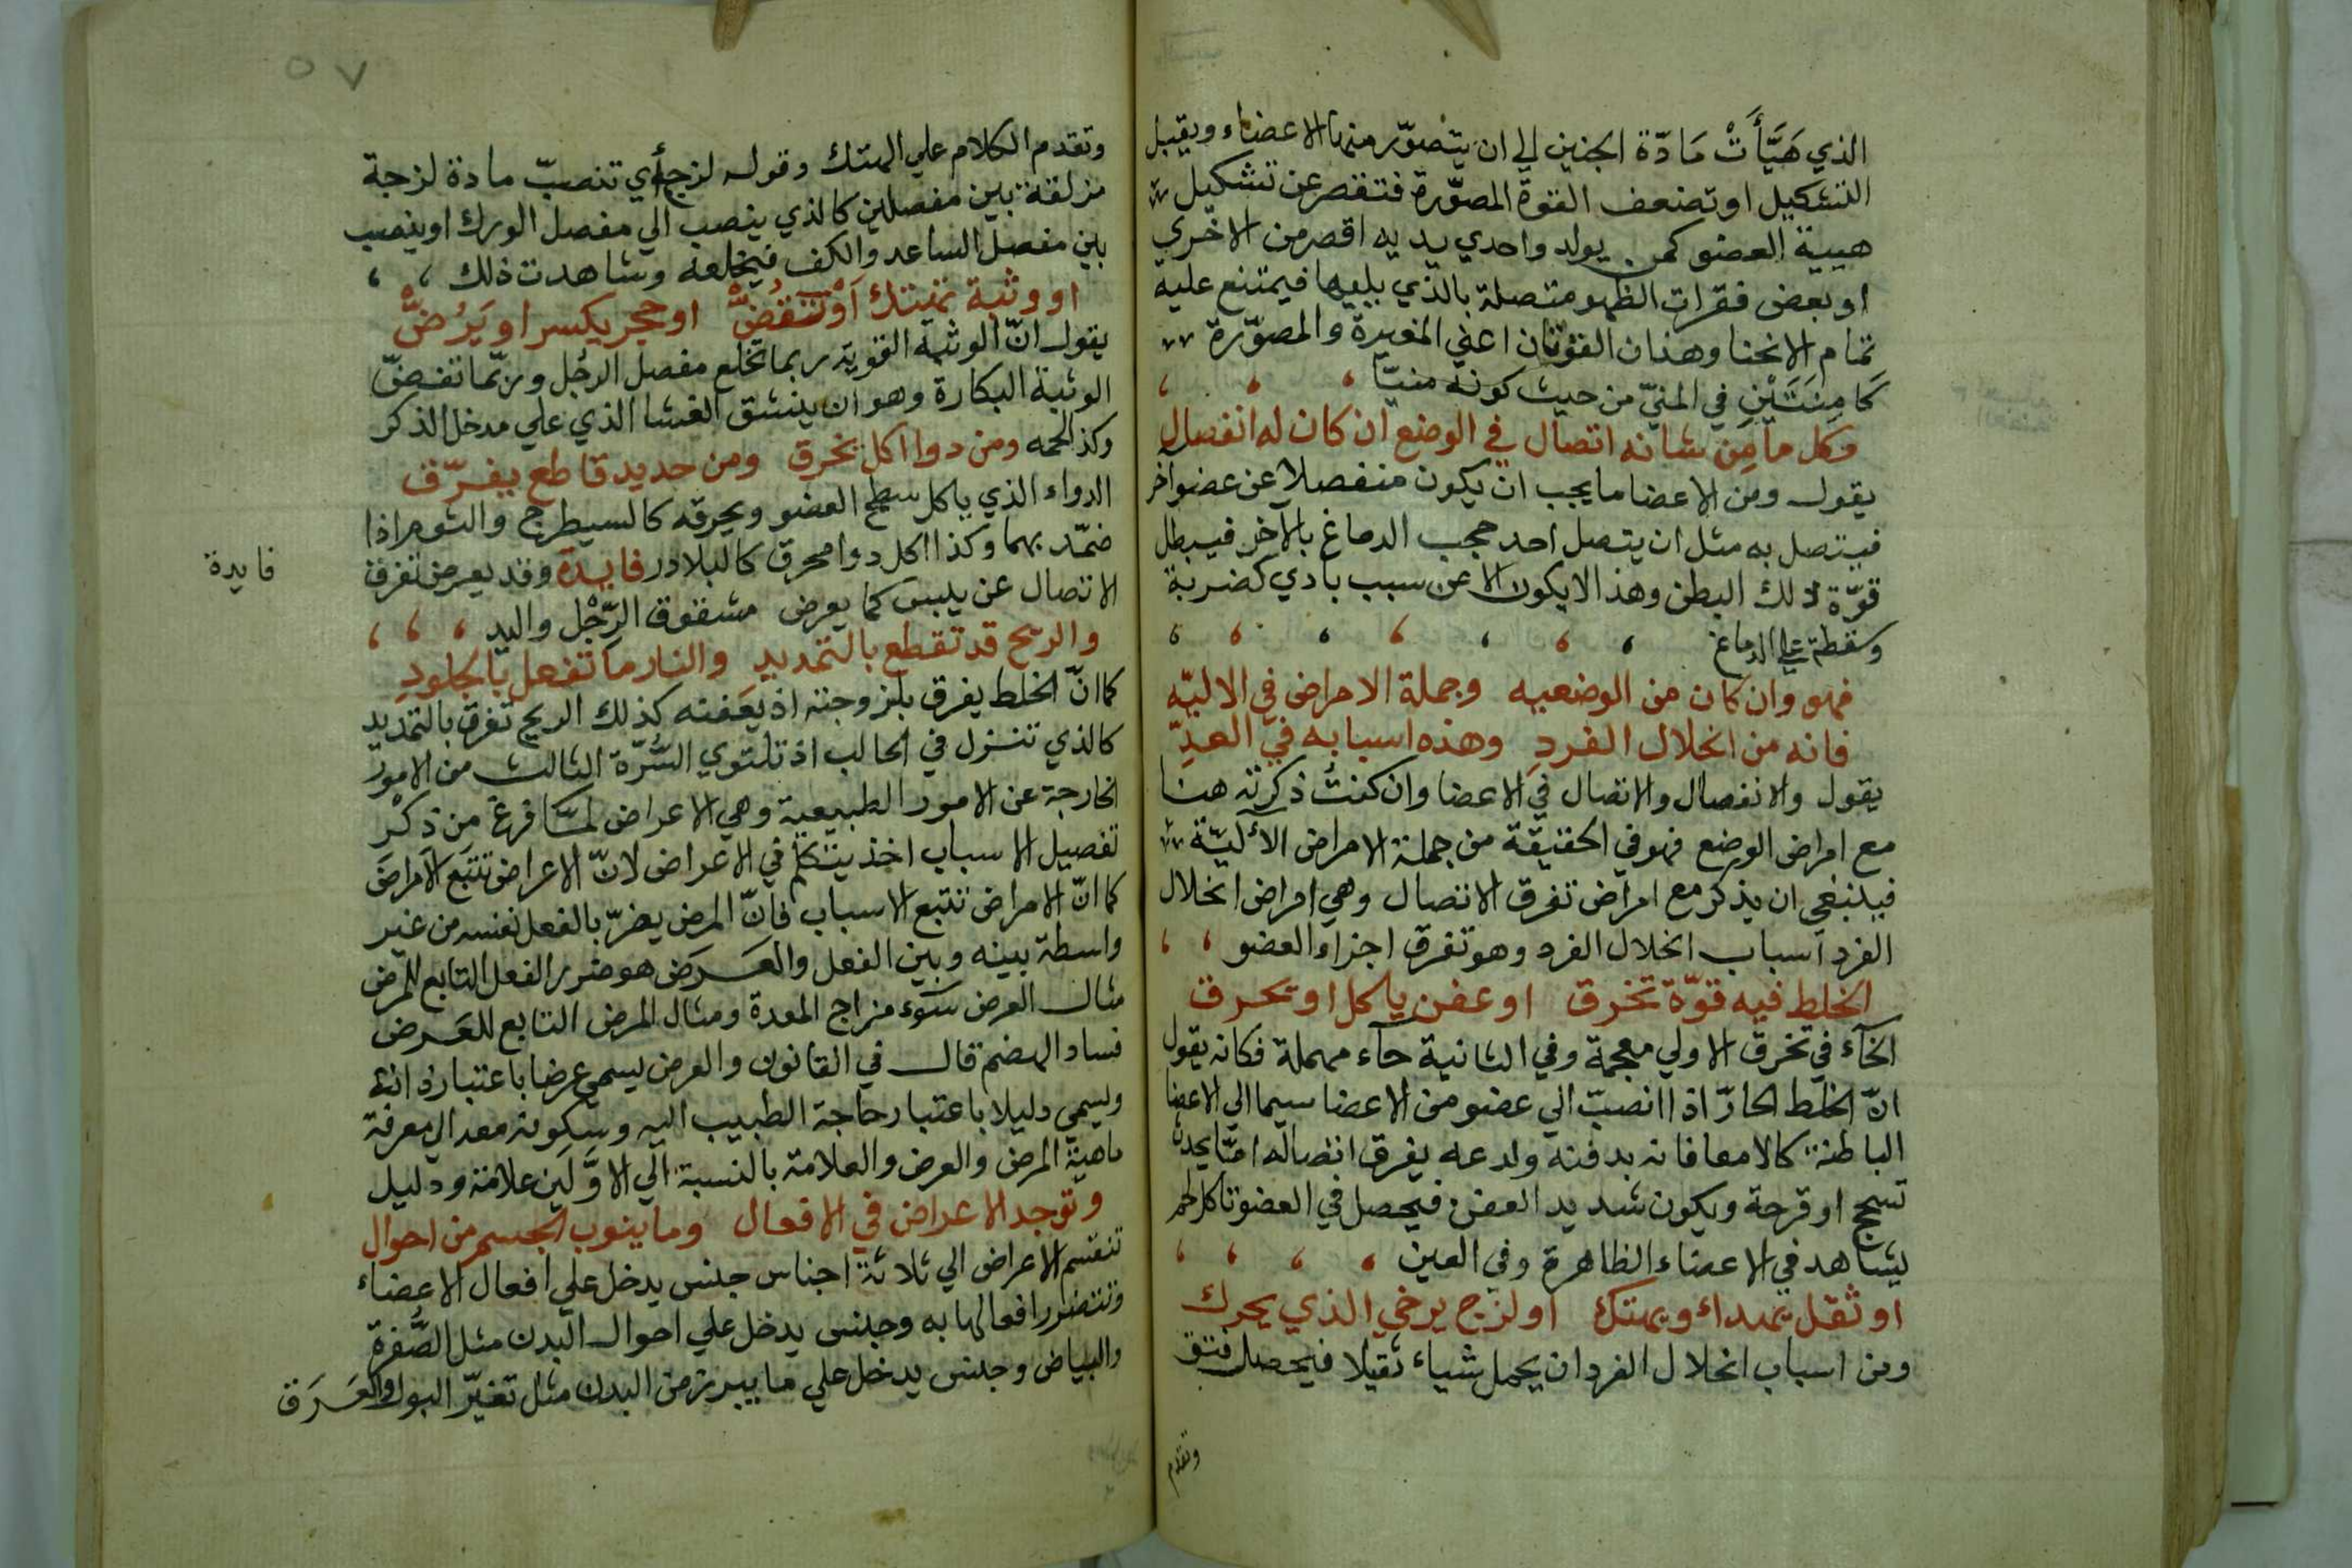 الذي هَيَّأَتْ مَادّة الجنين الي ان يتصوّر منها الاعضاء ويقبل
التشكيل او تضعف القوة المصوّرة فتقصر عن تشكيل
هيية العضو كمن يولد واحدي يديه اقصر من الاخري
او بعض فقرات الظهر متصلة بالذي يليها فيمتنع عليه
تمام الانحنا وهذان القوتان اعني المغيرة والمصوّرة
كَامِنَتَيْنِ في المنيّ من حيث كونه منيّا
وكل ما مِن شانه اتصال في الوضع ان كان له انفصال
يقول ومن الاعضا ما يجب ان يكون منفصلا عن عضو اخر
فيتصل به مثل ان يتصل احد حجب الدماغ بالآخر فيبطل
قوّة ذلك البطن وهذا لا يكون الا عن سبب بادي كضربة
وسقطة علي الدماغ
فهو وان كان من الوضعيه وجملة الامراض في الاليّه
فانه من انحلال الفردِ وهذه اسبابه في العدِّ
يقول والانفصال والاتصال في الاعضا وان كنتُ ذكرته هنا
مع امراض الوضع فهو في الحقيقة من جملة الامراض الأليّة
فينبغي ان يذكر مع امراض تفرق الاتصال وهي امراض انحلال
الفرد اسباب انحلال الفرد وهو تفرق اجزاء العضو
الخلط فيه قوّة تخرق او عفن ياكل او تحرق
الخآء في تخرق الاولي معجمة وفي الثانية حآء مهملة فكانه يقول
انّ الخلط الحارّ اذا انصبّ الي عضو من الاعضا سيما الي الاعضا
الباطنة كالامعا فانه بدفنه ولدعه يفرق اتصاله امّا يحدث
تسحج او قرحة ويكون شديد العفن فيحصل في العضو تاكل لحم
يشاهد في الاعضاء الظاهرة وفي العين
او ثقل يمدد او يهتك او لزج يرخي الذي يحرك
ومن اسباب انحلال الفرد ان يحمل شياء ثقيلا فيحصل فتق
وتقدم
٥٧
وتقدم الكلام علي الهتك وقوله لزج أي تنصبّ مادة لزجة
مزلقة بين مفصلين كالذي ينصب الي مفصل الورك او ينصب
بين مفصل الساعد والكف فيخلعه وشاهدت ذلك
او وثبة تهتك أوْ تَقُضُّ او حجر يكسر او يَرُضُّ
يقول انّ الوثبة القوية ربما تخلع مفصل الرجُل وربّما تفضّ
الوثبة البكارة وهو ان ينشق الغشا الذي علي مدخل الذكر
وكذا لحمه ومن دوا اكل يخرق ومن حديد قاطع يفرّق
الدواء الذي ياكل سطح العضو ويحرقه كالسيطرج والثوم اذا
ضمّد بهما وكذا اكل دوا محرق كالبلادر فايدة وقد يعرض تفرق
فايدة
الاتصال عن يلبس كما يعرض مشقوق الرِّجْل واليد
والريح قد تقطع بالتمديدِ والنار ما تفعل بالجلودِ
كما انّ الخلط يفرق بلزوجته اذ يعَفنه كذلك الريح تفرق بالتمديد
كالذي تنزل في الحالب اذ تلتوي السُّرّة الثالث من الامور
الخارجة عن الامور الطبيعية وهي الاعراض لمّا فرغ من ذكْر
تفصيل الاسباب اخذ يتكلم في الاعراض لانّ الاعراض تتبَع الامراض
كما انّ الامراض تتبع الاسباب فانّ المرض يضرّ بالفعل نفسه من غير
واسطة بينه وبين الفعل والعَرَض هو ضرر الفعل التابع للمرض
مثال العرض سَوء مزاج المعدة ومثال المرض التابع للعَرض
فساد الهضم قال في القانون والعرض يسمي عرضا باعتبار ذاته
ويسمي دليلا باعتبار حاجة الطبيب اليه وسكونه معه الي معرفة
ماهية المرض والعرض والعلامة بالنسبة الي الاوَّلين علامة ودليل
وتوجد الاعراض في الافعال وما ينوب الجسم من احوال
تنقسم الاعراض الي ثلاثة اجناس جنس يدخل علي افعال الاعضاء
وتتضرر افعالها به وجنس يدخل علي احوال البدن مثل الصُّفرة
والبياض وجنس يدخل علي ما يبرز من البدن مثل تغيّر البول والعَرَق